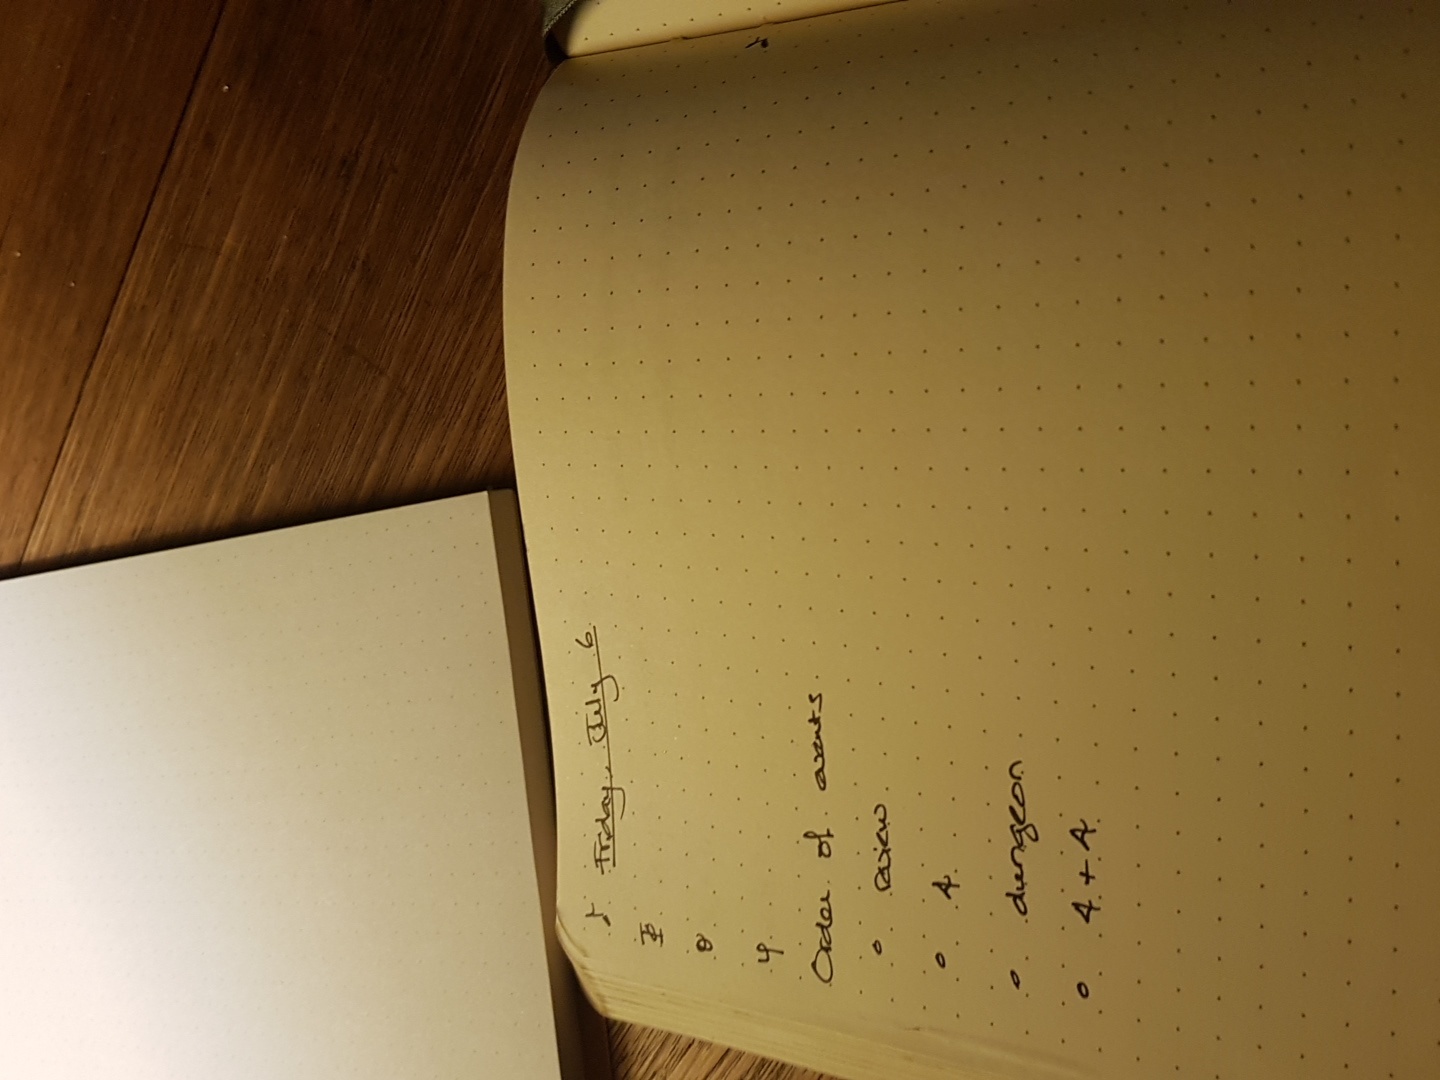 ♪ Friday, July 6
Order of events
° review
° 4
° dungeon
° 4 + 4